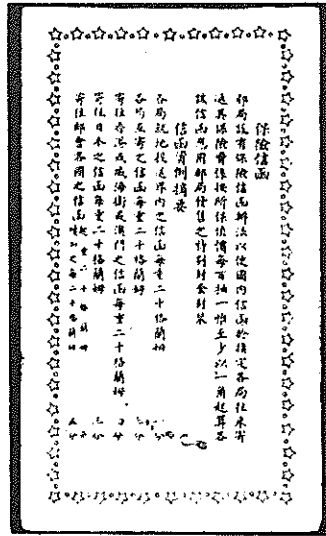 保險信函
郵局設有保險信函辦法以便國內信函於指定各局往來寄
遞其保險費係按所保值價每百抽一惟至少以一角起算各
該信函應用郵局發售之特別封套封裝
信函資例摘要
各局就地投送界內之信函每重二十格蘭姆
各局互寄之信函每重二十格蘭姆
寄往香港或威海衛或澳門之信函每重二十格蘭姆
寄往日本之信函每重二十格蘭姆
寄往郵會各國之信函